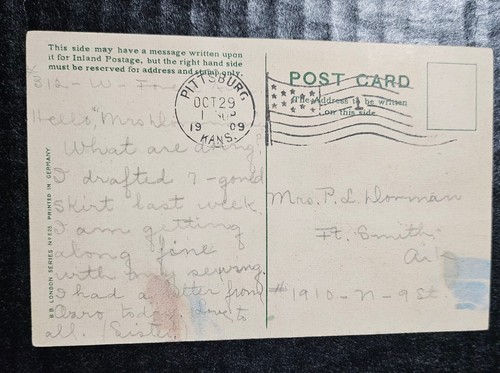 This side may have a message written upon
it for Inland Postage, but the right hand side
must be reserved for address and stamp only.
312 - W -
Hello, Mrs
What are doing.
I drafted 7-gored
skirt last week.
I am getting
along fine
with my sewing.
I had a letter from
today. Love to
all. Sister
R.B. LONDON SERIES PRINTED IN GERMANY
PITTSBURG
OCT 29
1909
KANS.
POST CARD
The Address to be written
on this side
Mrs. P. L. Dorman
Ft. Smith
Ark
# 1910 - N - 9 St